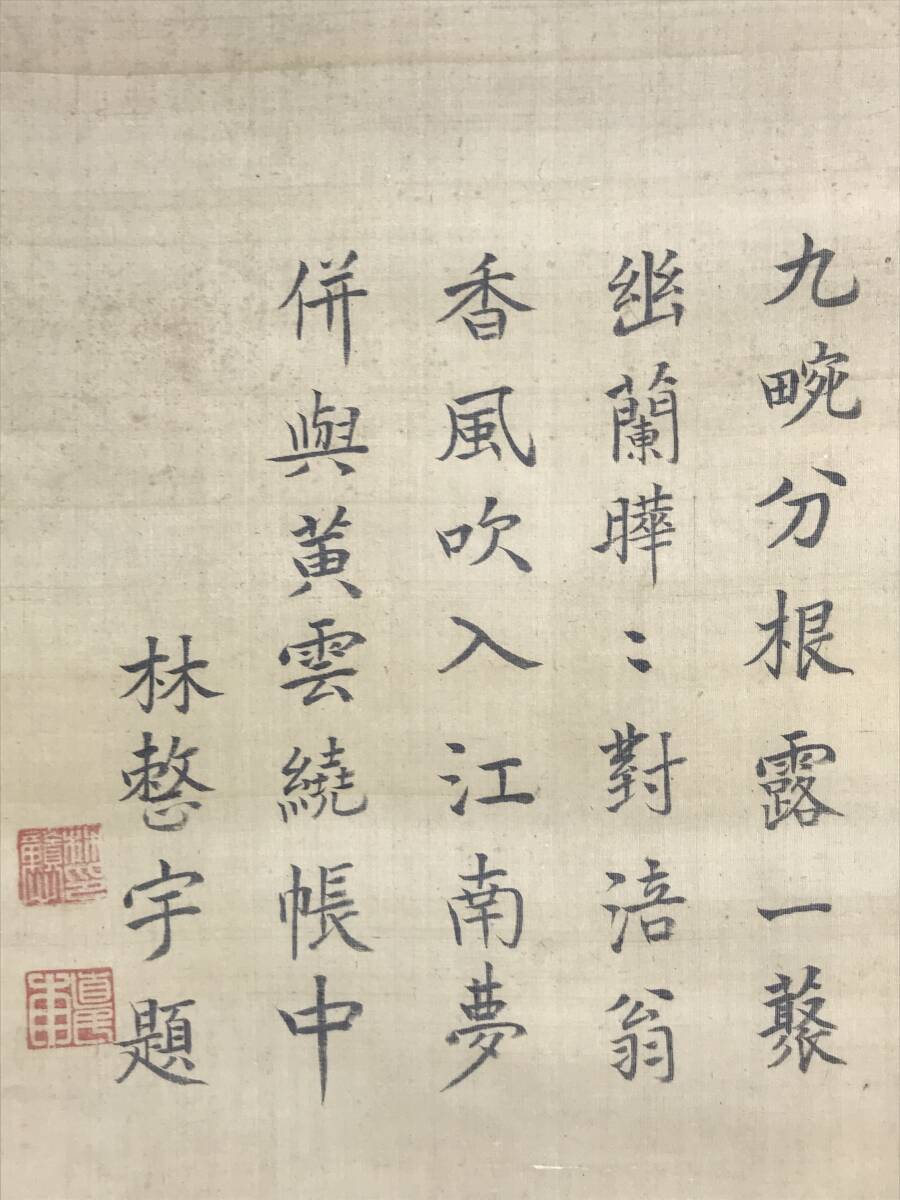 九畹分根露一藂
幽蘭曄〻對涪翁
香風吹入江南夢
併與黄雲繞帳中
林整宇題